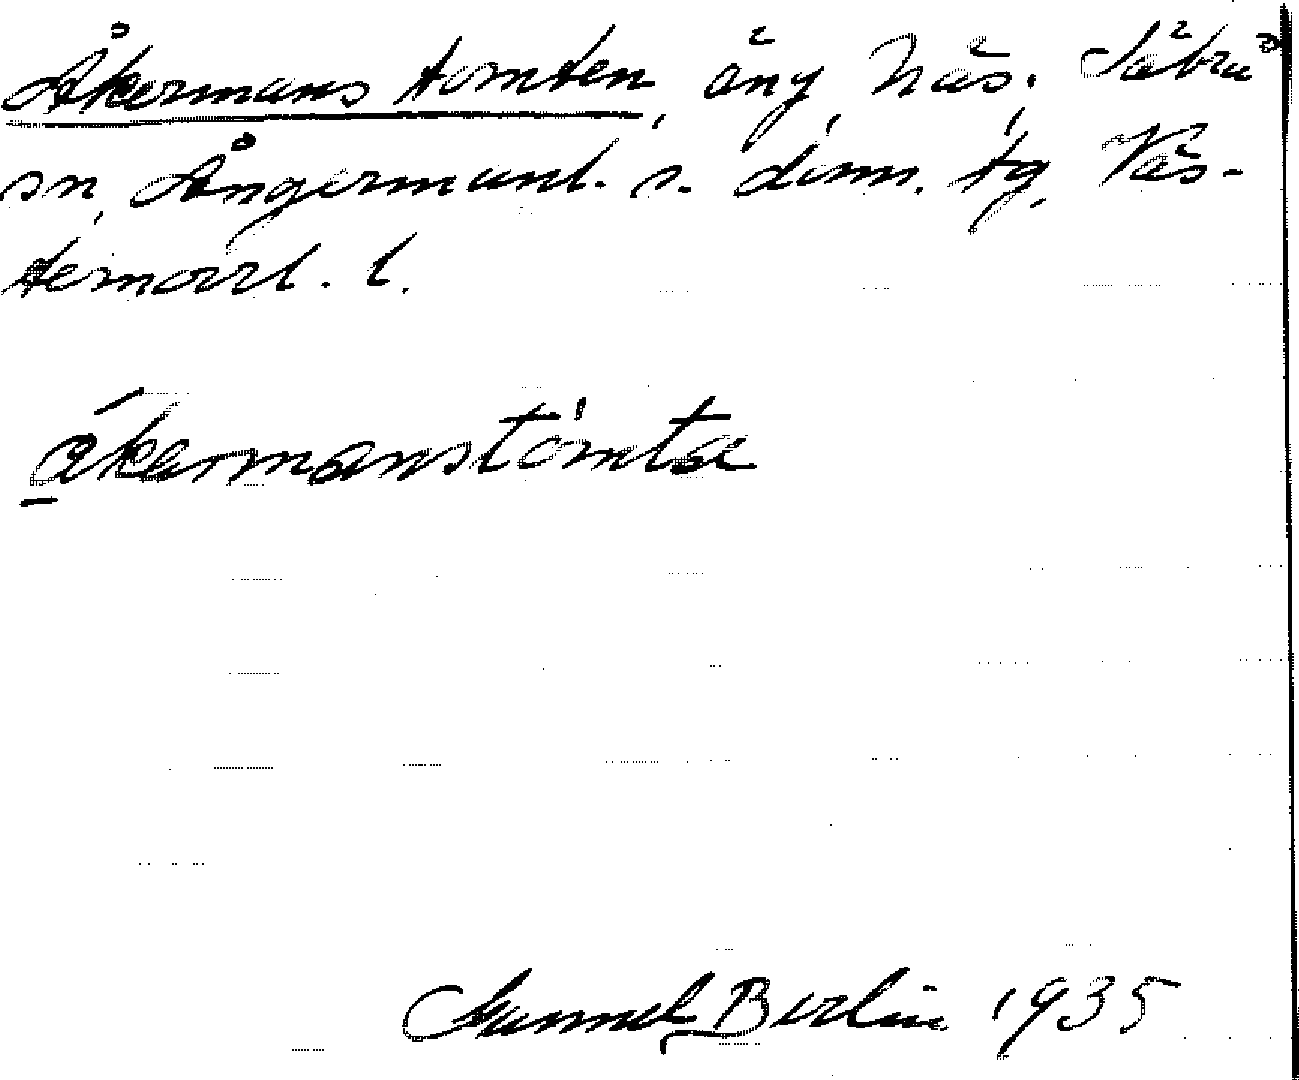 Åkermans tomten, äng, Näs, Säbrå
sn, Ångermanl. s. doms. tg, Väs-
ternorrl. l.
ákermanstòmta
Gunnel Berlin 1935